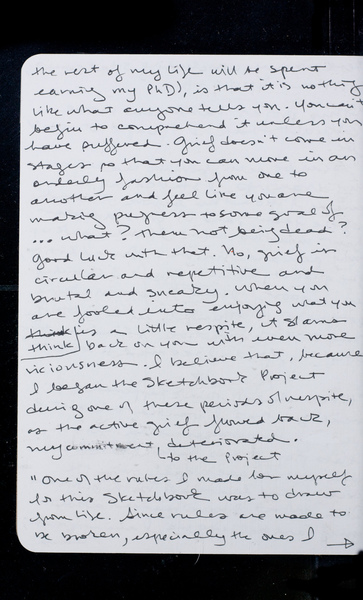 the rest of my life will be spent
earning my PhD), is that it is nothing
like what anyone tells you. You can't
begin to comprehend it unless you
have suffered. Grief doesn't come in
stages so that you can move in an
orderly fashion from one to
another and feel like you are
making progress to some goal of
... what? Them not being dead?
Good luck with that. No, grief is
circular and repetitive and
brutal and sneaky. When you
are fooled into enjoying what you
think is a little respite, it slams
think back on you with even more
viciousness. I believe that, because
I began the Sketchbook Project
during one of these periods of respite,
as the active grief flowed back,
my commitment deteriorated.
to the Project
"One of the rules I made for myself
for this Sketchbook was to draw
from life. Since rules are made to
be broken, especially the ones I →